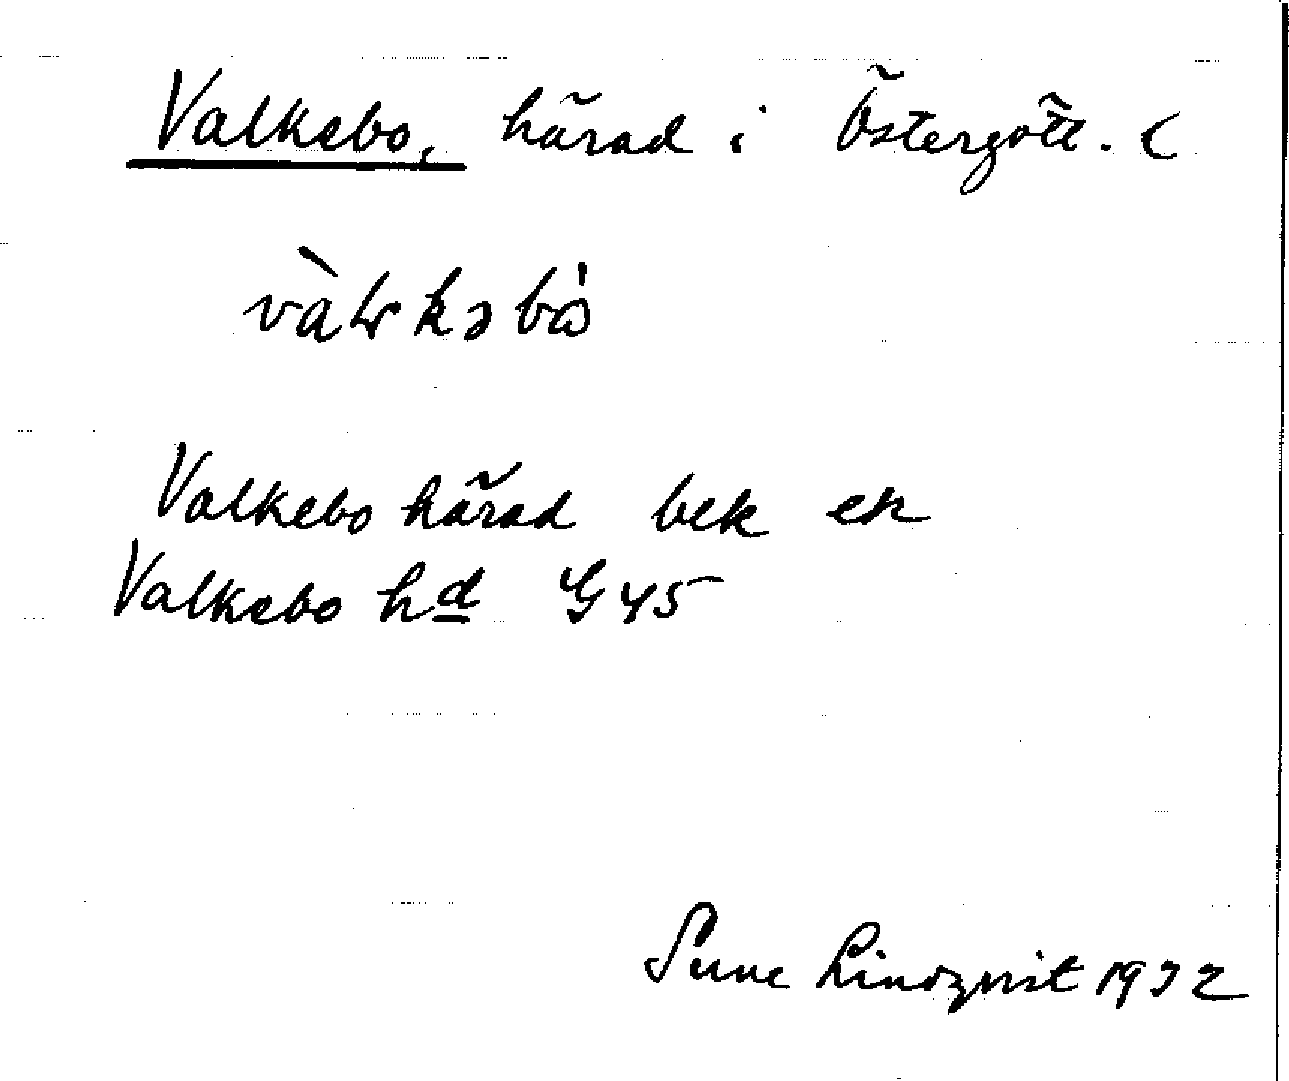 Valkebo, härad i Östergötl. (
vàlkəbò
Valkebo härad bek ek
Valkebo hd G 45
Sune Lindqvist 1932